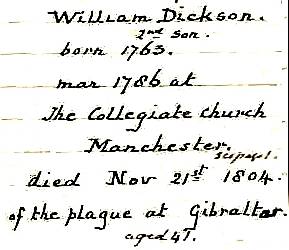 William Dickson.
2nd son.
born 1763.
mar 1786 at
The Collegiate Church
Manchester.
died Nov 21st 1804.
of the plague at Gibraltar.
aged 41.